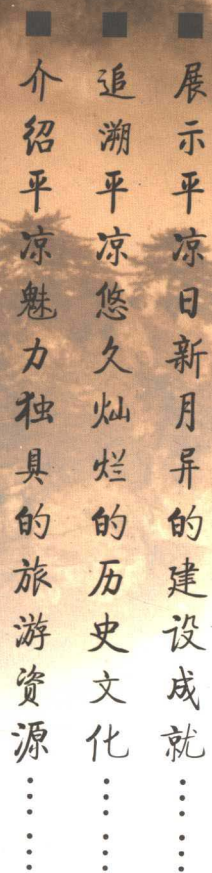 ■展示平凉日新月异的建设成就……
■追溯平凉悠久灿烂的历史文化……
■介绍平凉魅力独具的旅游资源……